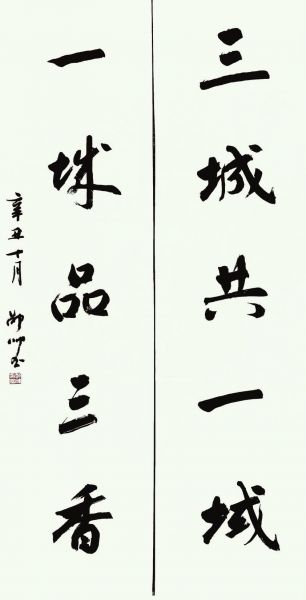 三城共一域
一城品三香
辛丑十月